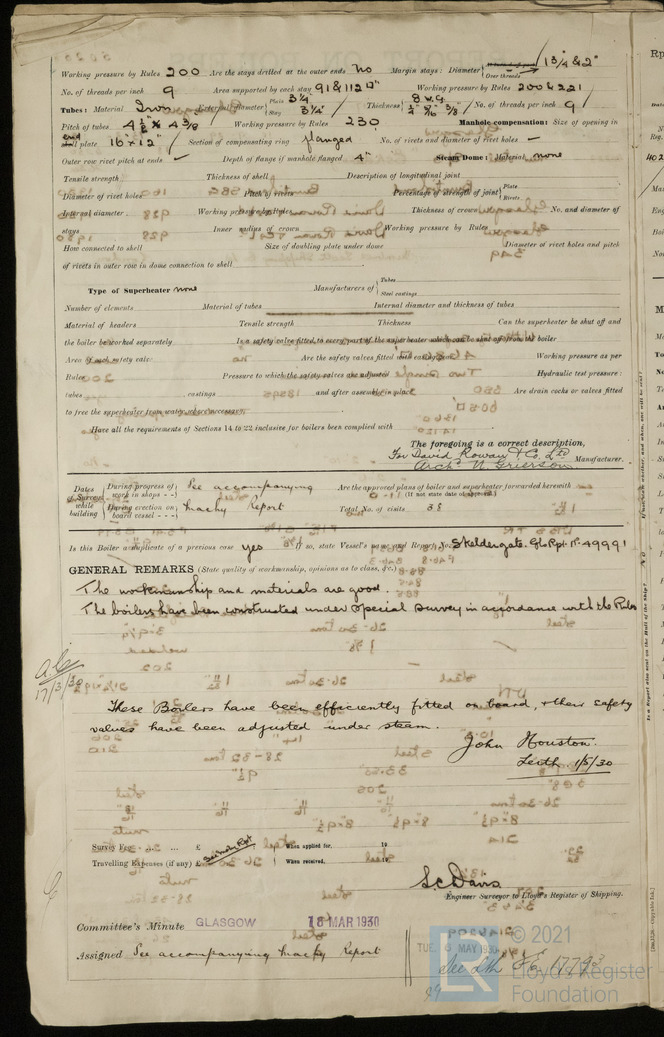 Working pressure by Rules 200 Are the stays drilled at the outer ends No Margin stays: Diameter { Over threads 1 3/4 & 2"
No. of threads per inch 9 Area supported by each stay 91 & 112 □" Working pressure by Rules 200 & 221
Tubes: Material Iron External diameter { Plain 3 1/4" Stay 3 1/4" Thickness { 8 W.G. 1/4" 5/16 3/8" No. of threads per inch 9
Pitch of tubes 4 1/2 × 4 3/8 Working pressure by Rules 230 Manhole compensation: Size of opening in
end plate 16 × 12" Section of compensating ring flanged No. of rivets and diameter of rivet holes -
Outer row rivet pitch at ends - Depth of flange if manhole flanged 4" Steam Dome: Material none
Tensile strength Thickness of shell Description of longitudinal joint
Diameter of rivet holes Pitch of rivets Percentage of strength of joint { Plate Rivets
Internal diameter Working pressure by Rules Thickness of crown No. and diameter of
stays Inner radius of crown Working pressure by Rules
How connected to shell Size of doubling plate under dome Diameter of rivet holes and pitch
of rivets in outer row in dome connection to shell
Type of Superheater none Manufacturers of { Tubes Steel castings
Number of elements Material of tubes Internal diameter and thickness of tubes
Material of headers Tensile strength Thickness Can the superheater be shut off and
the boiler be worked separately Is a safety valve fitted to every part of the superheater which can be shut off from the boiler
Area of each safety valve Are the safety valves fitted with easing gear Working pressure as per
Rules Pressure to which the safety valves are adjusted Hydraulic test pressure:
tubes castings and after assembly in place Are drain cocks or valves fitted
to free the superheater from water where necessary
Have all the requirements of Sections 14 to 22 inclusive for boilers been complied with
The foregoing is a correct description,
For David Rowan & Co. Ltd
Archd. N. Grierson Manufacturer.
Dates of Survey while building { During progress of work in shops - - See accompanying Are the approved plans of boiler and superheater forwarded herewith (If not state date of approval.)
During erection on board vessel - - - Machy Report Total No. of visits 38
Is this Boiler a duplicate of a previous case yes If so, state Vessel's name and Report No. Skeldergate. Glo Rpt. No 49991
GENERAL REMARKS (State quality of workmanship, opinions as to class, &c.)
The workmanship and materials are good.
The boilers have been constructed under special survey in accordance with the Rules
17/3/30
These Boilers have been efficiently fitted on board, & their safety
valves have been adjusted under steam.
John Houston.
Leith. 1/5/30
Survey Fee ... ... £ See Machy Rpt When applied for, 19
Travelling Expenses (if any) £ When received, 19
S.C. Davis.
Engineer Surveyor to Lloyd's Register of Shipping.
Committee's Minute GLASGOW 18 MAR 1930
Assigned See accompanying Machy Report
TUE. 6 MAY 1930
See Lth F.E. 17793
© 2021
Lloyd's Register
Foundation